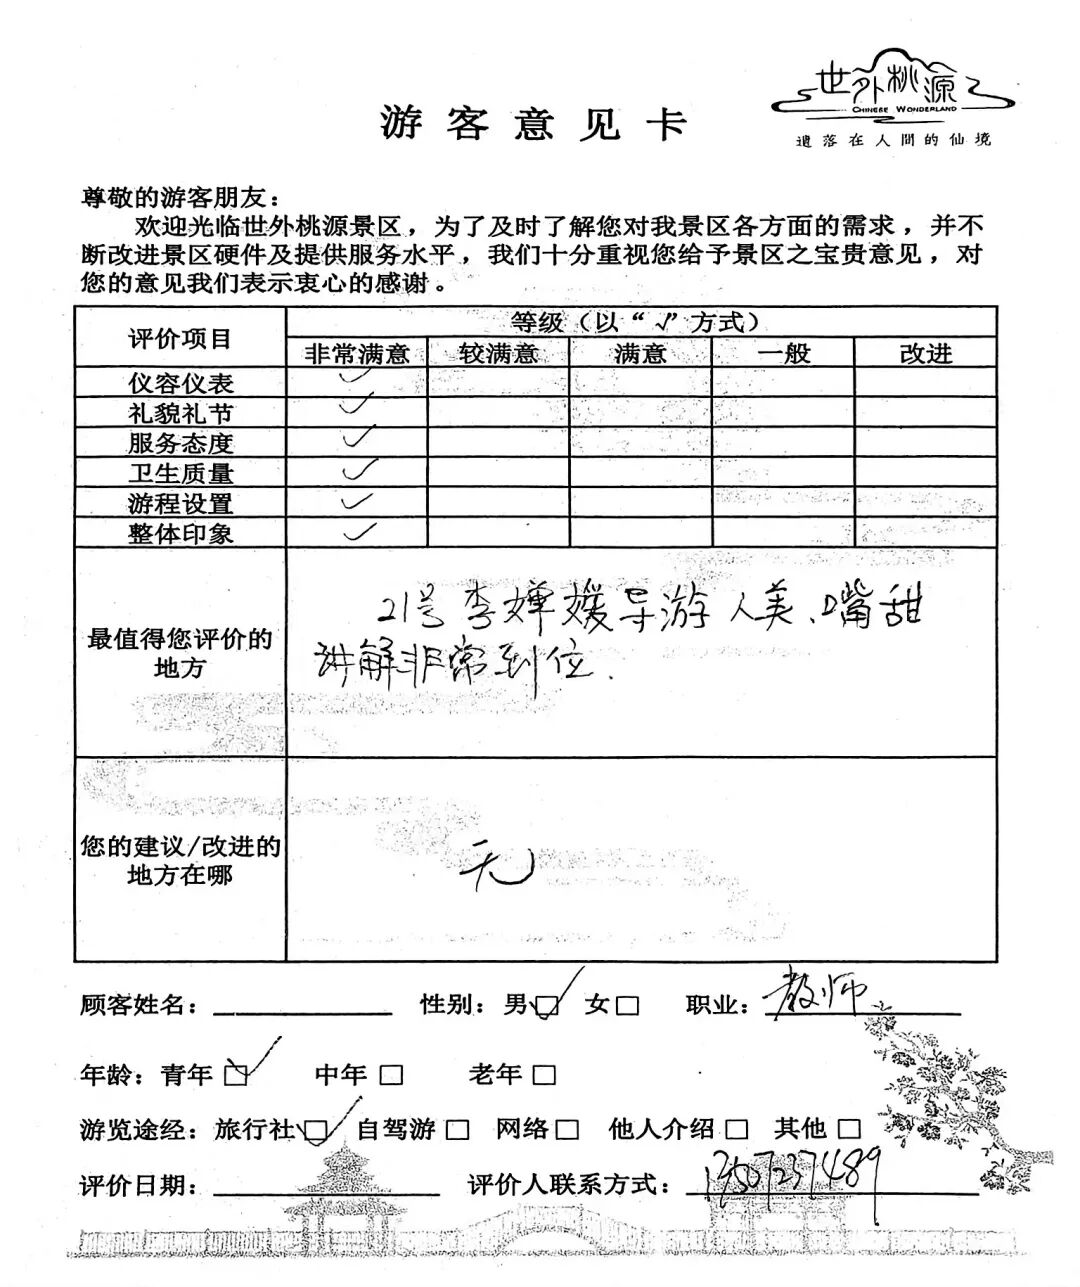 世外桃源
CHINESE WONDERLAND
遗落在人間的仙境
游客意见卡
尊敬的游客朋友：
欢迎光临世外桃源景区，为了及时了解您对我景区各方面的需求，并不
断改进景区硬件及提供服务水平，我们十分重视您给予景区之宝贵意见，对
您的意见我们表示衷心的感谢。
评价项目
等级（以“√”方式）
非常满意 较满意 满意 一般 改进
仪容仪表 ✓
礼貌礼节 ✓
服务态度 ✓
卫生质量 ✓
游程设置 ✓
整体印象 ✓
最值得您评价的
地方
21号李婵媛导游人美、嘴甜
讲解非常到位.
您的建议/改进的
地方在哪
无
顾客姓名： 性别：男☑ 女□ 职业：教师
年龄：青年☑ 中年□ 老年□
游览途经：旅行社☑ 自驾游□ 网络□ 他人介绍□ 其他□
评价日期： 评价人联系方式：